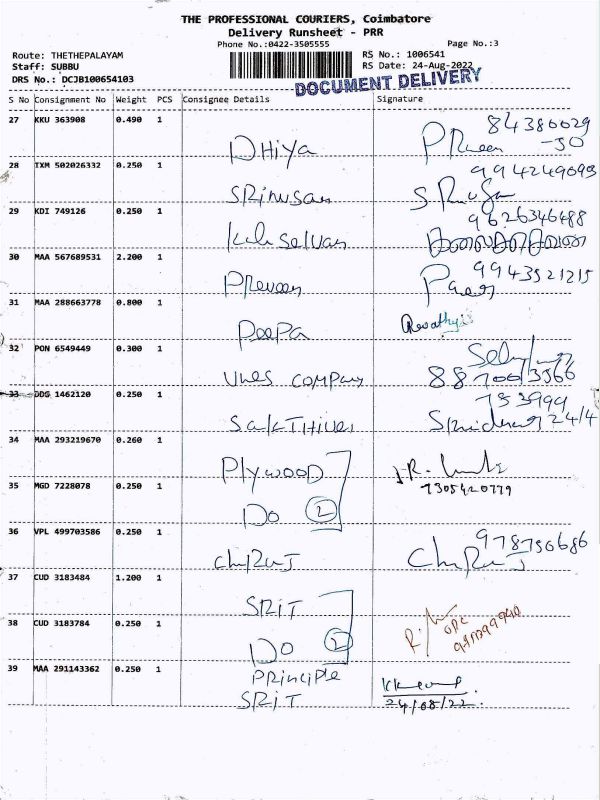 THE PROFESSIONAL COURIERS, Coimbatore
Delivery Runsheet - PRR
Phone No.:0422-3505555
Page No.:3
Route: THETHEPALAYAM
RS No.: 1006541
Staff: SUBBU
RS Date: 24-Aug-2022
DRS No.: DCJB100654103
DOCUMENT DELIVERY
S No Consignment No Weight PCS Consignee Details Signature
27 KKU 363908 0.490 1
DHiya
28 TXM 502026332 0.250 1
9942490693
SRinusan
29 KDI 749126 0.250 1
9626346488
KaleSelvan
30 MAA 567689531 2.200 1
9943521215
Preveen
31 MAA 288663778 0.800 1
Revathy
DeePA
32 PON 6549449 0.300 1
COMPany
33 DDG 1462120 0.250 1
SakTHivel 24/4
34 MAA 293219670 0.260 1
Plywood
35 MGD 7228078 0.250 1
7305420779
Do 2
36 VPL 499703586 0.250 1
978750686
37 CUD 3183484 1.200 1
SRIT
38 CUD 3183784 0.250 1
Do 2
39 MAA 291143362 0.250 1
PRinciPle
SRiT
24/08/22.